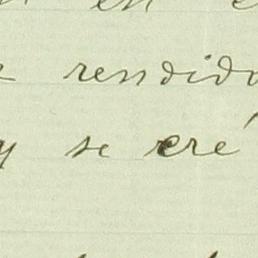 en
rendido
y se cré